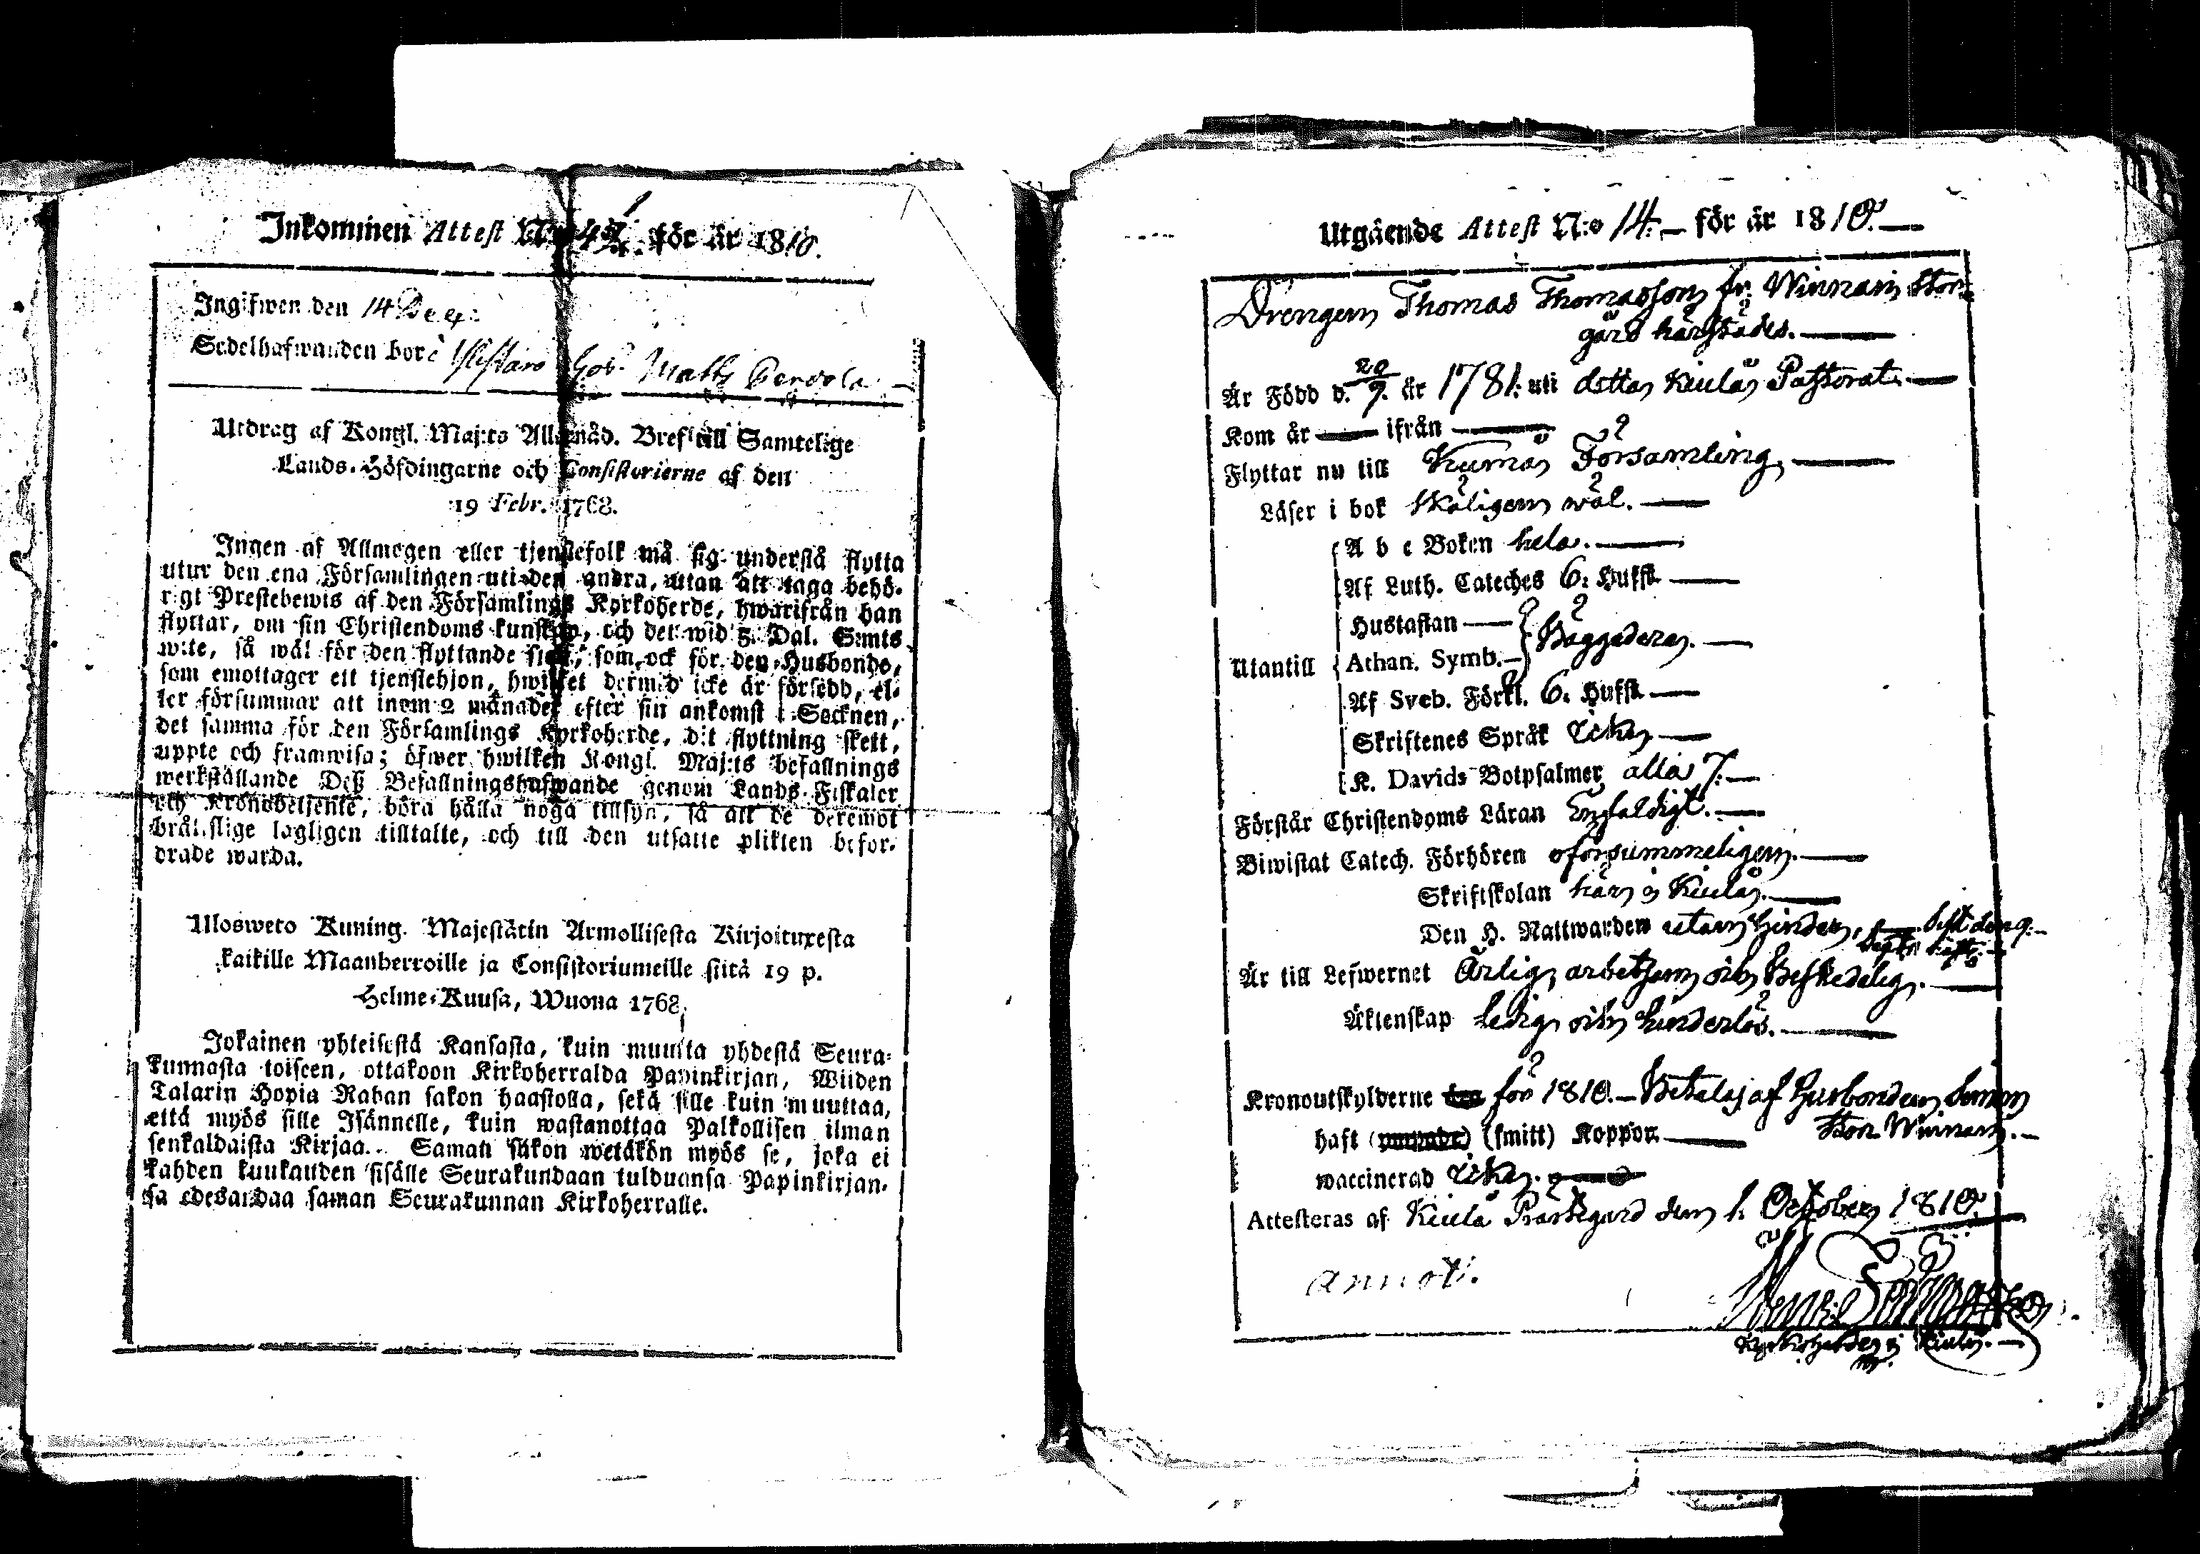 Inkommen Attest N:o för år 1810.
Ingifwen den 14 Dec:
Sedelhafwanden bor i Matts
Utdrag af Kongl. Maj:ts Allernåd. Bref till Samtelige
Lands-Höfdingarne och Consistorierne af den
19 Febr. 1768.
Ingen af Allmogen eller tjenstefolk må sig understå flytta
utur den ena Församlingen uti den andra, utan att taga behö-
rigt Prestebewis af den Församlings Kyrkoherde, hwarifrån han
flyttar, om sin Christendoms kunskap, och det wid 5 Dal. S:mts
wite, så wäl för den flyttande sjelf, som ock för den Husbonde,
som emottager ett tjenstehjon, hwilket dermed icke är försedd, el-
ler försummar att inom 2 månader efter sin ankomst i Socknen,
det samma för den Församlings Kyrkoherde, dit flyttning skett,
uppte och framwisa; öfwer hwilken Kongl. Maj:ts befallnings
werkställande Deß Befallningshafwande genom Lands-Fiskaler
och Kronobetjente, böra hålla noga tillsyn, så att de deremot
bråtslige lagligen tilltalte, och till den utsatte plikten befor-
drade warda.
Ulosweto Kuning. Majestätin Armollisesta Kirjoituxesta
kaikille Maanherroille ja Consistoriumeille siitä 19 p.
Helme-Kuusa, Wuona 1768.
Jokainen yhteisestä Kansasta, kuin muutta yhdestä Seura-
kunnasta toiseen, ottakoon Kirkoherralda Papinkirjan, Wiiden
Talarin Hopia Rahan sakon haastolla, sekä sille kuin muuttaa,
että myös sille Isännelle, kuin wastanottaa Palkollisen ilman
senkaldaista Kirjaa. Saman sakon wetäkön myös se, joka ei
kahden kuukauden sisälle Seurakundaan tulduansa Papinkirjan-
sa edesandaa saman Seurakunnan Kirkoherralle.
Utgående Attest N:o 14. för år 1810.
Drengen Thomas Thomasson fr. Winnari Stor-
gård härstädes.
Är Född d. 20/9. år 1781. uti detta Kiula Pastorat.
Kom år ifrån
Flyttar nu till Kumå Församling,
Läser i bok skäligen wäl.
A b c Boken hela.
Af Luth. Cateches 6. Hufst.
Hustaflan
Utantill Athan. Symb. Bäggedera.
Af Sveb. Förkl. 6. Hufst.
Skriftenes Språk icke
K. Davids Botpsalmer alla 7.
Förstår Christendoms Läran Enfaldigt.
Biwistat Catech. Förhören oförsummeligen.
Skriftskolan här i Kiula.
Den H. Nattwarden utan hinder,
Är till Lefwernet Ärlig, arbetsam och Beskedelig.
Äktenskap ledig och hinderlös.
Kronoutskylderne för 1810. Betalas af husbonden Simon
Stor Winnari.
haft (smitt) Koppor.
waccinerad icke.
Attesteras af Kiula Prästegård den 1. October 1810.
annot.
Kyrkoherde i Kiula.